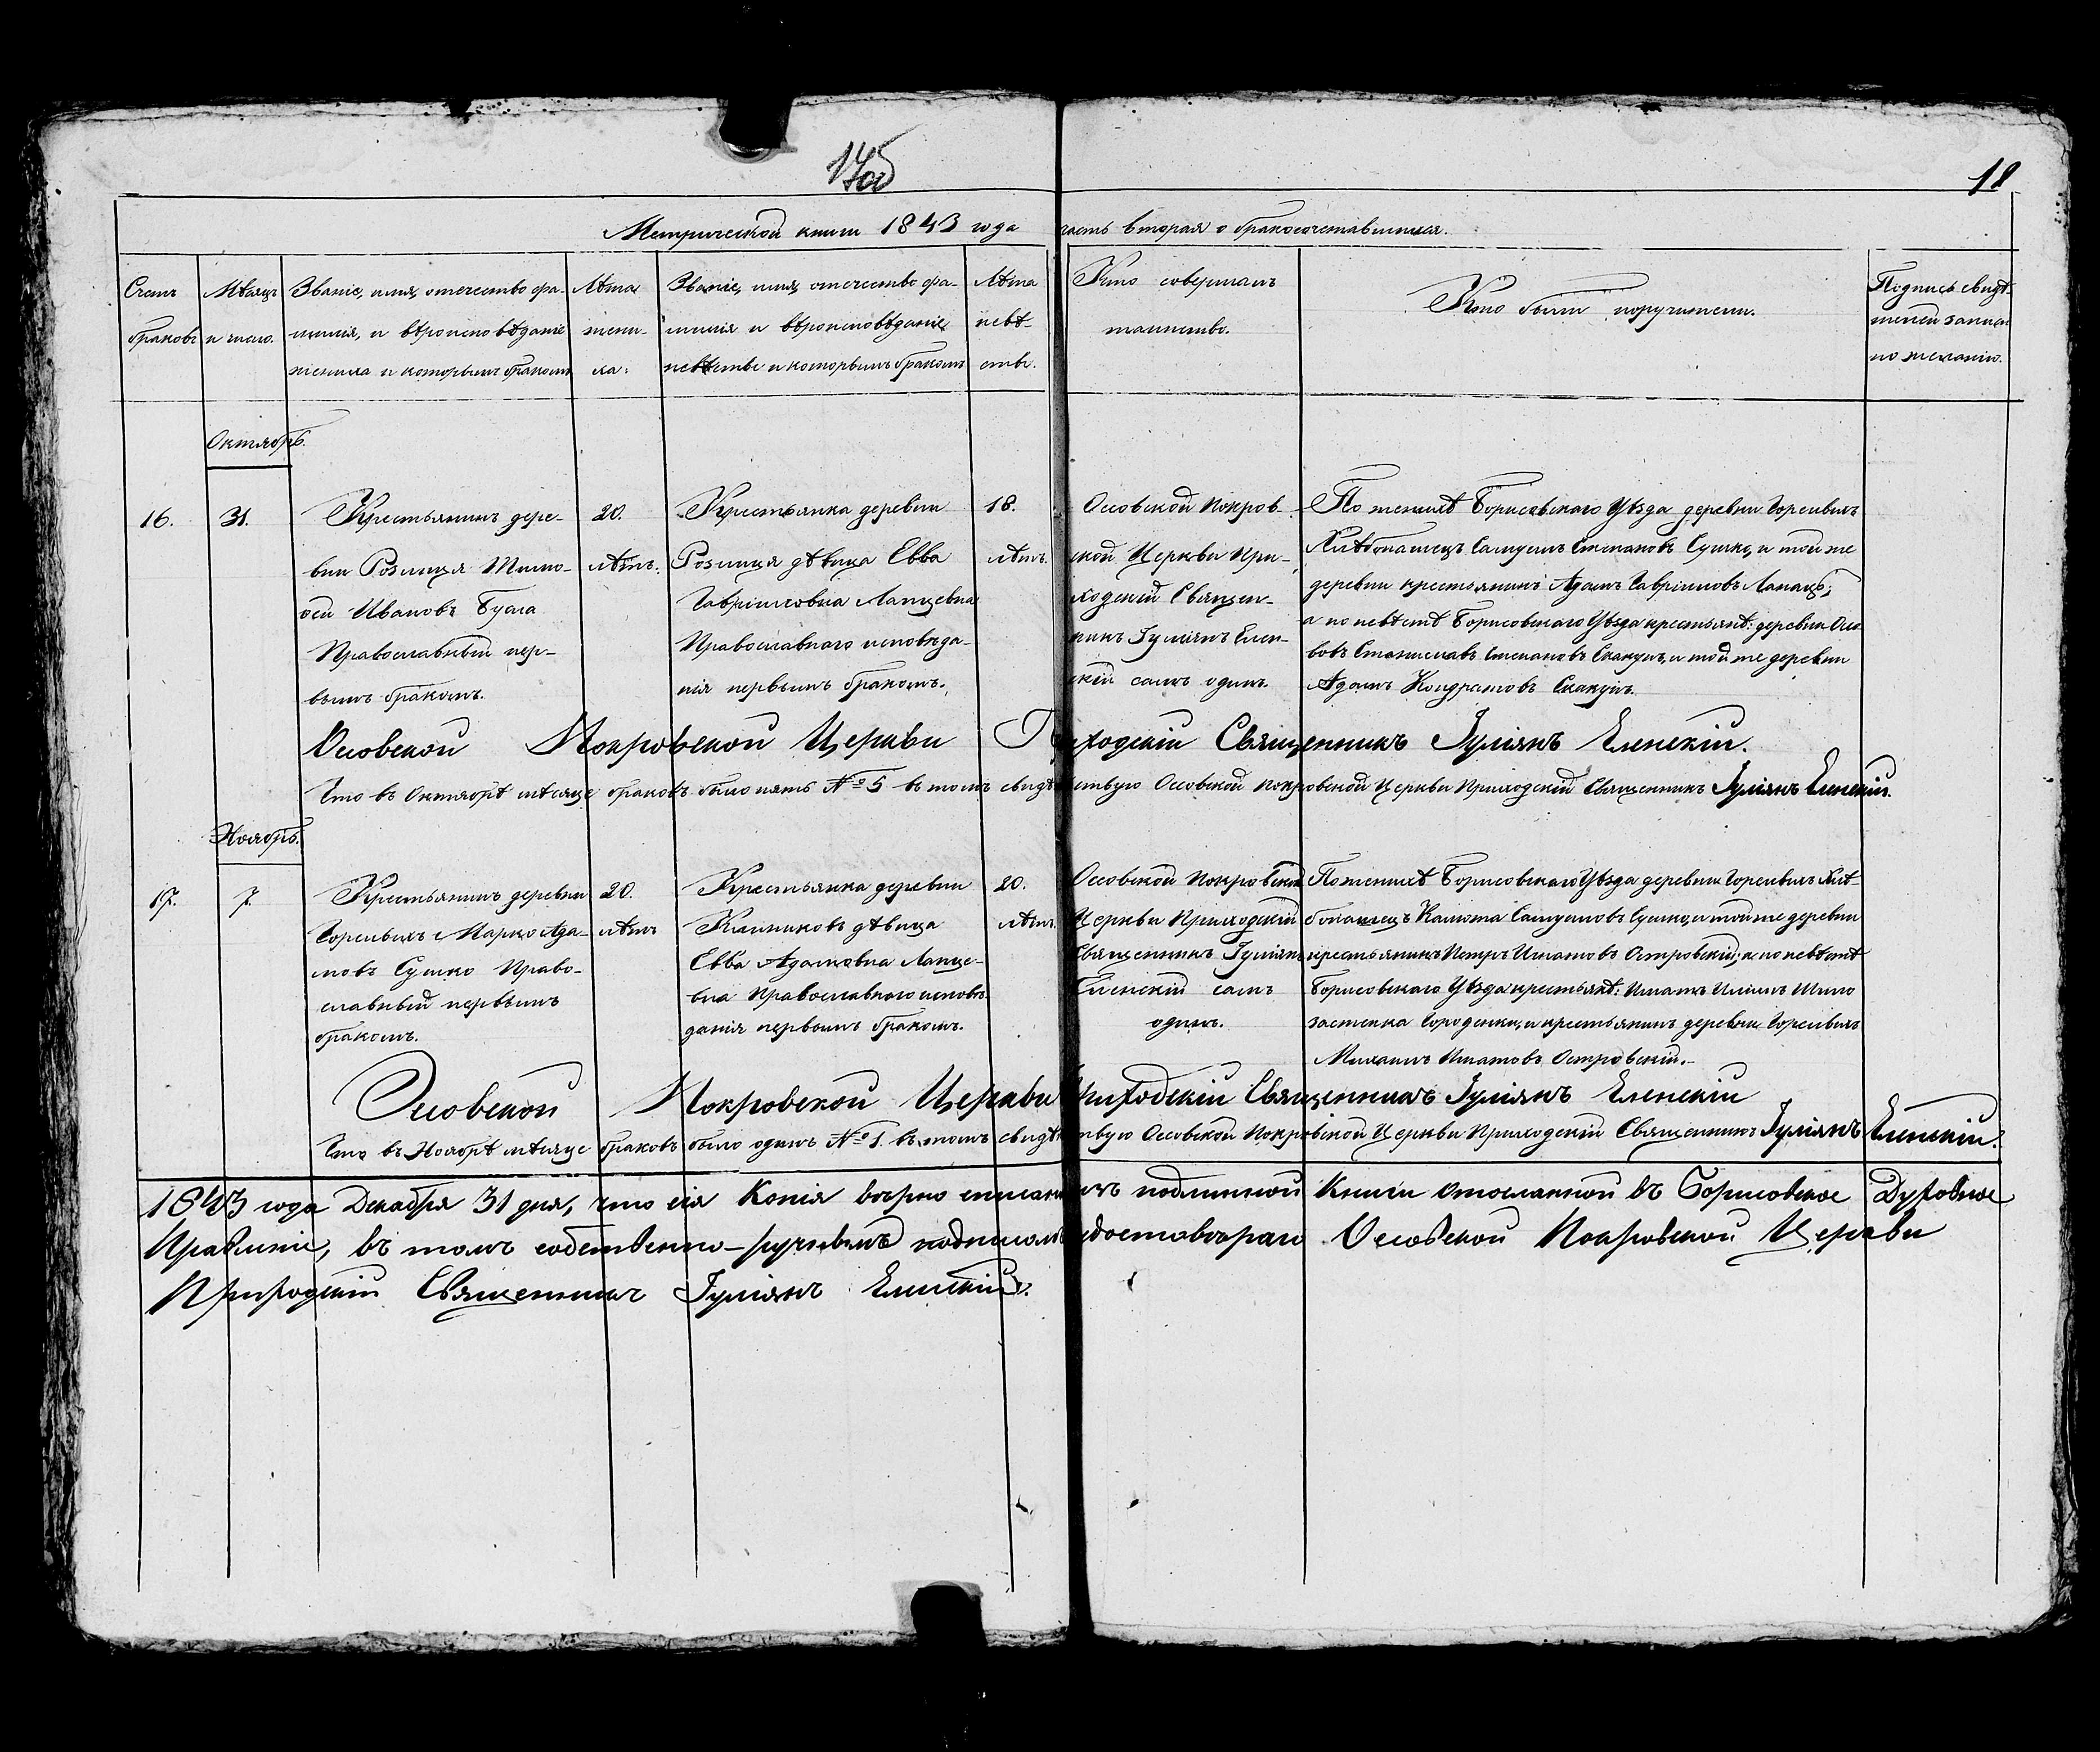 17об
18
Метрической книги 1843 года часть вторая о бракосочетавшихся.
Счетъ браковъ
Мѣсяцъ и число.
Званіе, имя, отечество фа-
милія, и вѣроисповѣданіе
жениха и которымъ бракомъ
Лѣта
жени-
ха.
Званіе, имя, отечество фа-
милія и вѣроисповѣданіе
невѣсты и которымъ бракомъ
Лѣта
невѣ-
сты.
Кто совершалъ
таинство.
Кто были поручители.
Подпись свидѣ-
телей записи
по желанію.
Октябрь.
16.
31.
Крестьянинъ дере-
вни Розлиця Тимо-
ѳей Ивановъ Буала
Православный пер-
вымъ бракомъ.
20.
лѣтъ.
Крестьянка деревни
Розлиця дѣвица Евва
Гавріиловна Лапцевна
Православнаго исповѣда-
нія первымъ бракомъ.
18.
лѣтъ.
Оссовской Покров-
ской Церкви При-
ходскій Священ-
никъ Іуліянъ Елен-
скій самъ одинъ.
По женихѣ Борисовскаго Уѣзда деревни Горелыхъ
Хлѣбопашецъ Самуилъ Степановъ Сушко, и той же
деревни крестьянинъ Адамъ Гавріиловъ Лапацъ;
а по невѣстѣ Борисовскаго Уѣзда крестьянѣ: деревни Осо-
вовъ Станиславъ Степановъ Скакунъ, и той же деревни
Адамъ Кондратовъ Скакунъ.
Осовской Покровской Церкви Приходскій Священникъ Іуліянъ Еленскій.
Что въ Октябрѣ мѣсяце браковъ было пять № 5 въ томъ свидѣтельствую Оссовской Покровской Церкви Приходскій Священникъ Іуліянъ Еленскій.
Ноябрь.
17.
7.
Крестьянинъ деревни
Горелыхъ Марко Ада-
мовъ Сушко Право-
славный первымъ
бракомъ.
20.
лѣтъ
Крестьянка деревни
Клинниковъ дѣвица
Евва Адамовна Лапце-
вна Православнаго исповѣ-
данія первымъ бракомъ.
20.
лѣтъ.
Оссовской Покровской
Церкви Приходскій
Священникъ Іуліянъ
Еленскій самъ
одинъ.
По женихѣ Борисовскаго Уѣзда деревни Горелыхъ Хлѣ-
бопашецъ Калюта Самуиловъ Сушко, и той же деревни
крестьянинъ Петръ Игнатовъ Островскій; а по невѣстѣ
Борисовскаго Уѣзда крестьянѣ: Игнатъ Шило
застенка Городенки, и крестьянинъ деревни Горелыхъ
Михаилъ Игнатовъ Островскій.
Осовской Покровской Церкви Приходскій Священникъ Іуліянъ Еленскій
Что въ Ноябрѣ мѣсяце браковъ было одинъ № 1. въ томъ свидѣтельствую Оссовской Покровской Церкви Приходскій Священникъ Іуліянъ Еленскій.
1843 года Декабря 31 дня, что сія Копія вѣрно списана изъ подлинной Книги отосланной въ Борисовское Духовное
Правленіе, въ томъ собственно-ручнымъ подписомъ удостовѣряю Осовской Покровской Церкви
Приходскій Священникъ Іуліянъ Еленскій.